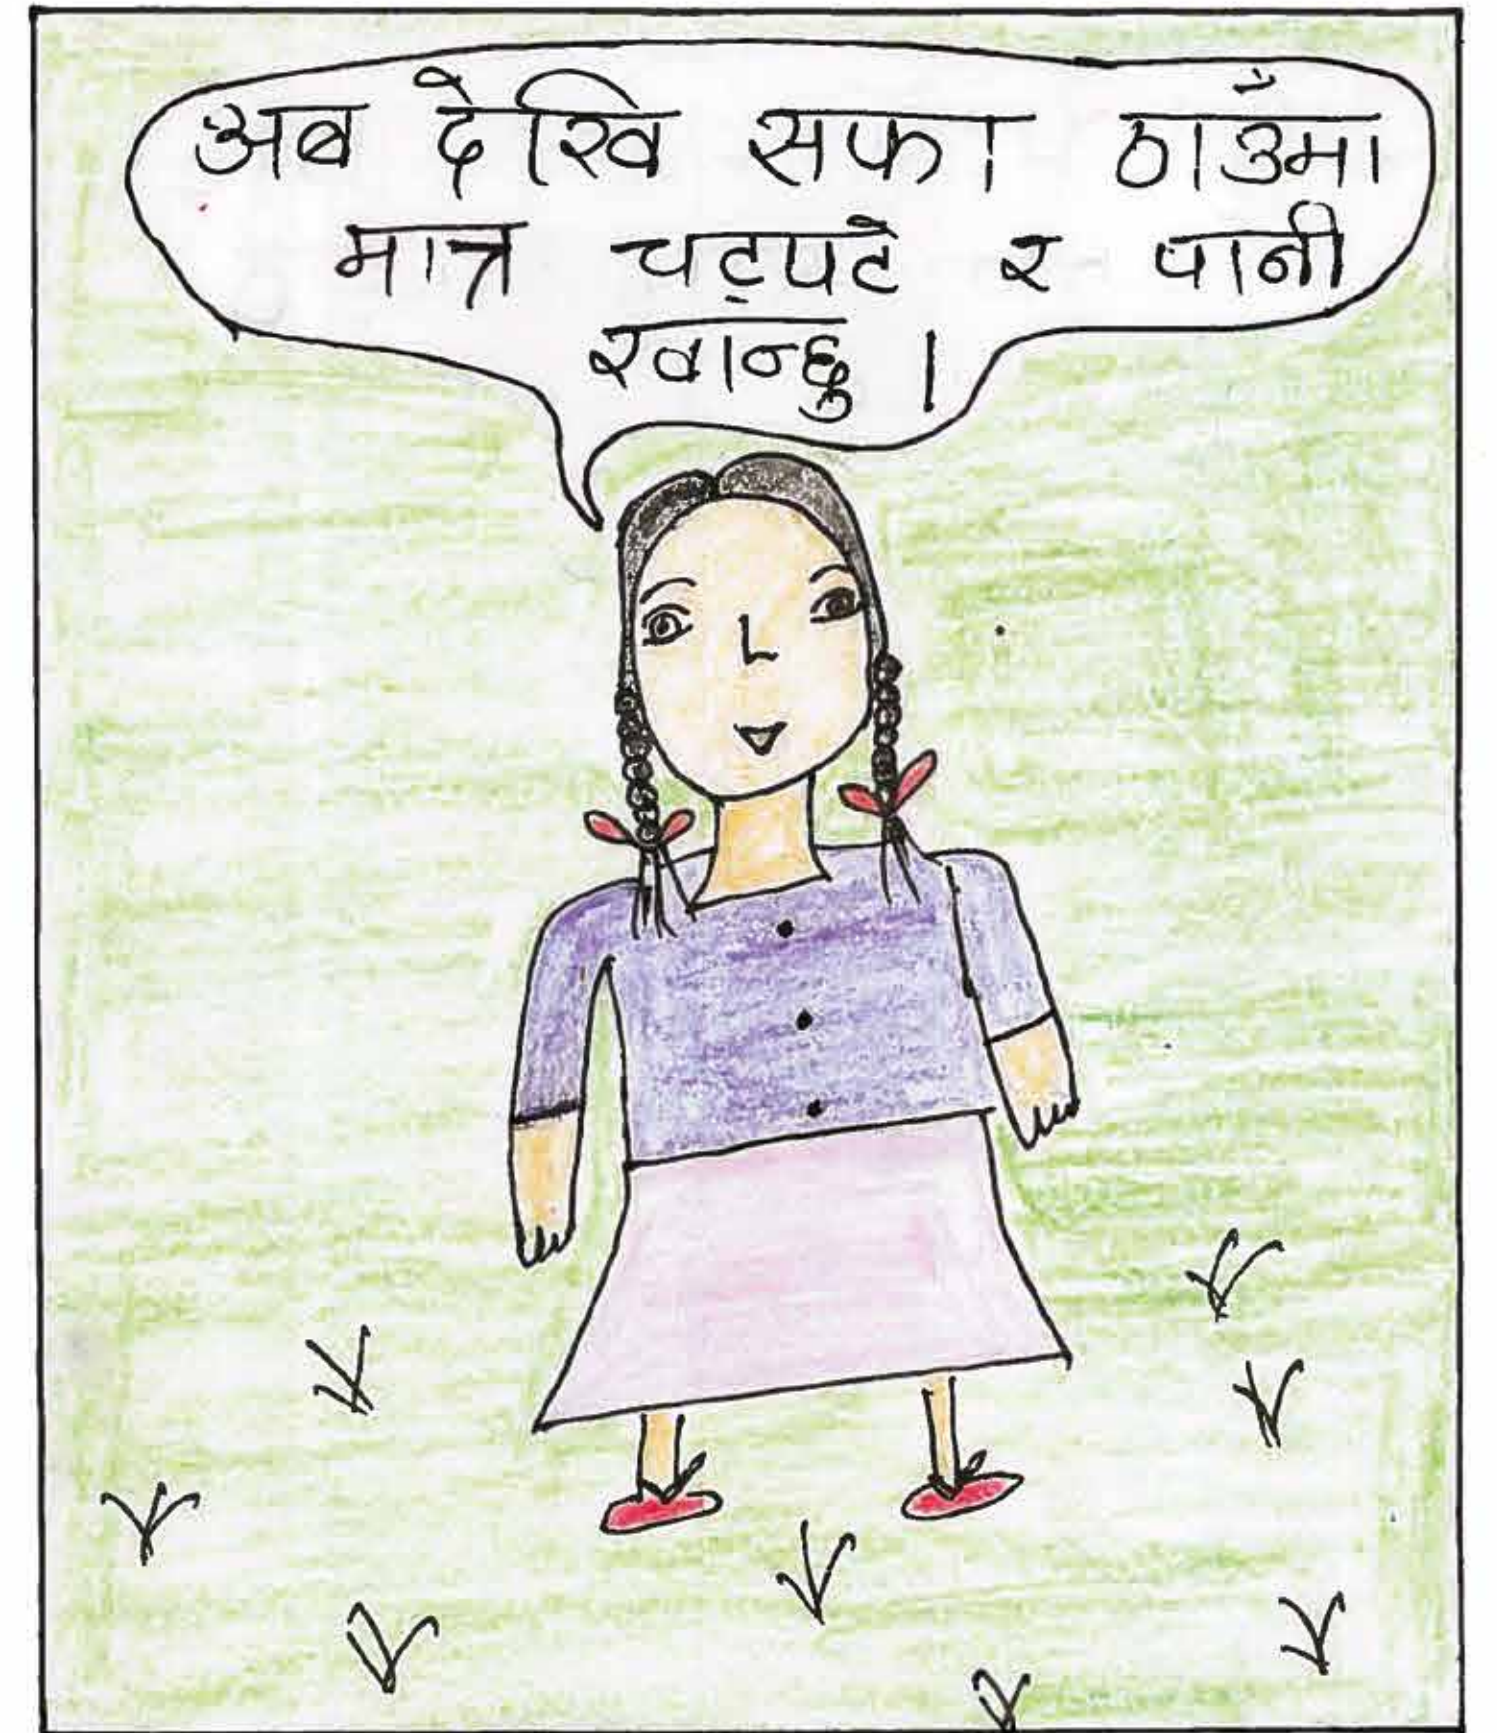 अब देखि सफा ठाउँमा
मात्र चट्पटे र पानी
खान्छु ।